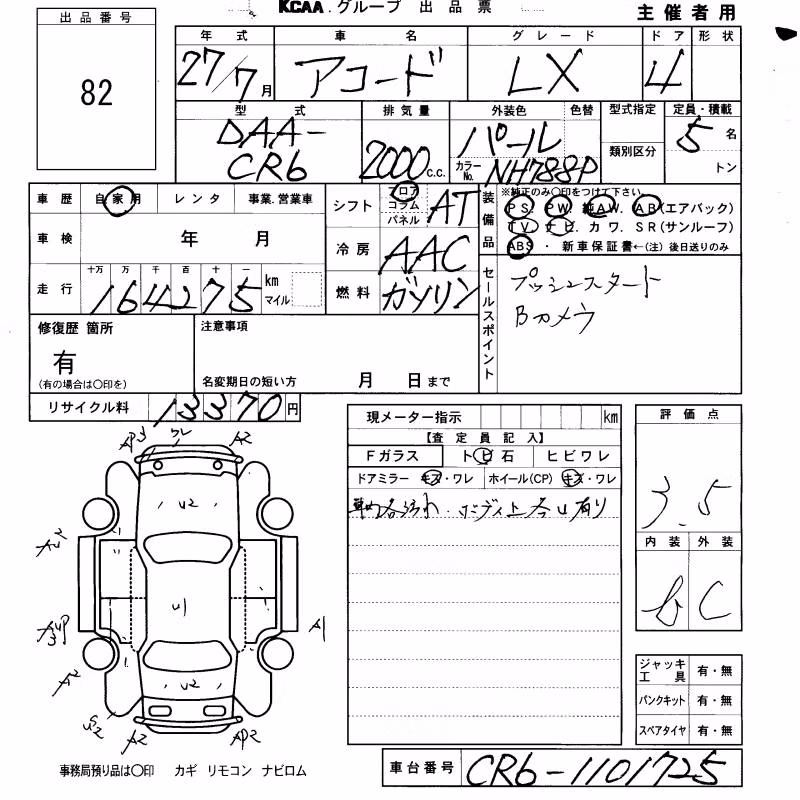 KCAA.グループ 出品票
主催者用
出品番号
82
年式 車名 グレード ドア 形状
27/7月 アコード LX 4
型式 排気量 外装色 色替 型式指定 定員・積載
DAA-CR6 2000 c.c. パール 類別区分 5名
カラーNo. NH788P トン
車歴 自家用 レンタ 事業.営業車
車検 年 月
走行 十万 万 千 百 十 一
164275 km マイル
シフト フロア コラム パネル AT
冷房 AAC
燃料 ガソリン
装備品
※純正のみ〇印をつけて下さい
PS. PW. 純AW. AB(エアバッグ)
TV. ナビ. カワ. SR(サンルーフ)
ABS・新車保証書←(注) 後日送りのみ
セールスポイント
プッシュスタート
Bカメラ
修復歴 箇所
有
(有の場合は〇印を)
注意事項
名変期日の短い方 月 日 まで
リサイクル料 13370 円
現メーター指示 km
【査定員記入】
Fガラス トビ石 ヒビワレ
ドアミラー キズ・ワレ ホイール(CP) キズ・ワレ
評価点
3.5
内装 外装
b C
ジャッキ 工具 有・無
パンクキット 有・無
スペアタイヤ 有・無
A2
U2
U1
A1
A2
U2
S2
A2
事務局預り品は〇印 カギ リモコン ナビロム
車台番号 CR6-1101725